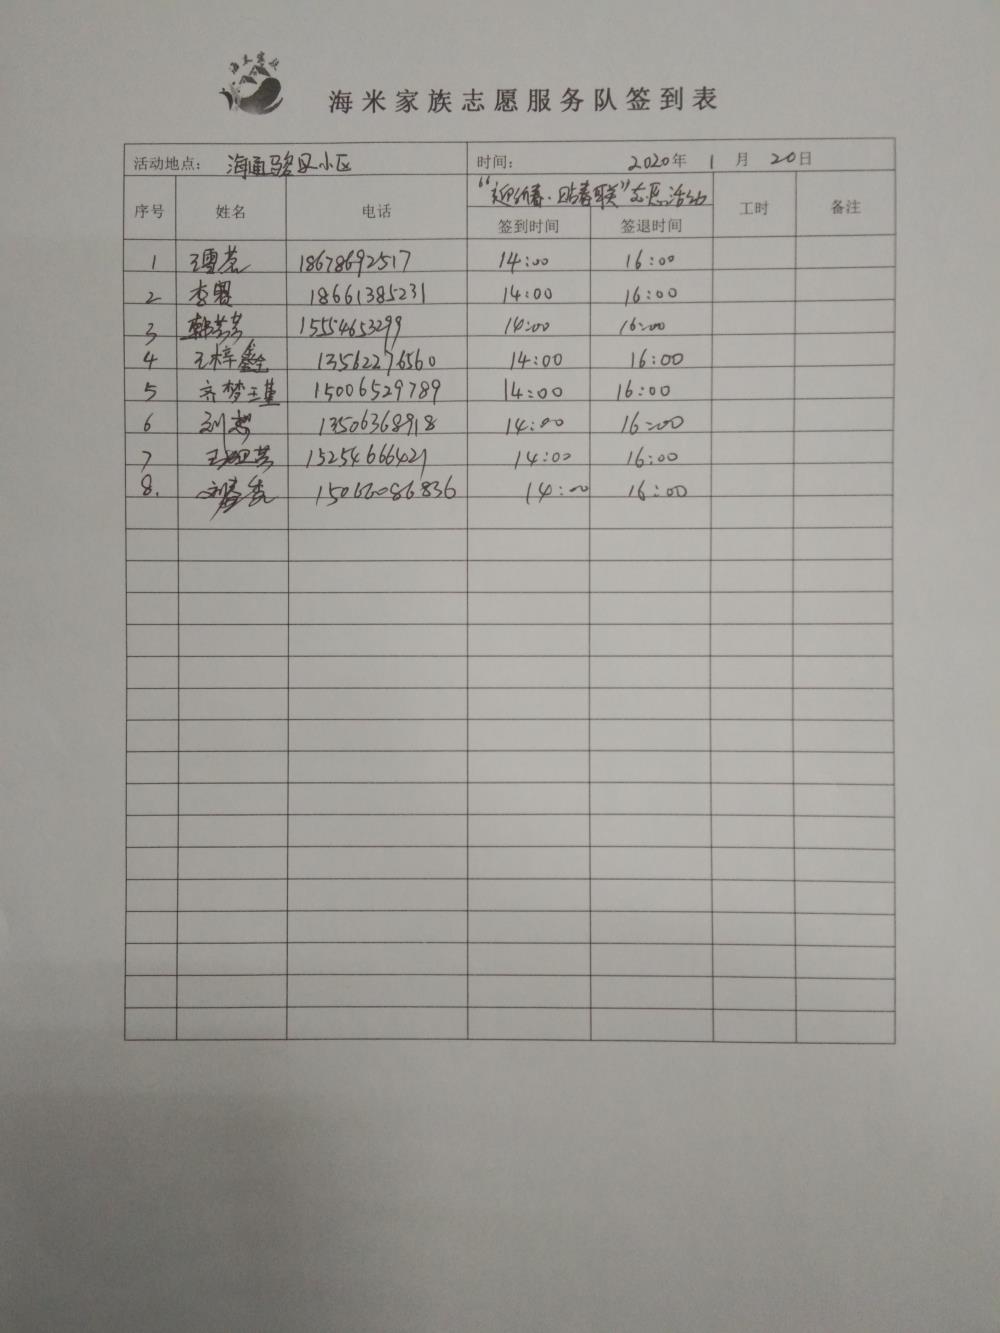 海米家族
海米家族志愿服务队签到表
活动地点：海通骏景小区 时间： 2020年 1 月 20日
序号 姓名 电话 “迎新春·贴春联”志愿活动 工时 备注
签到时间 签退时间
1 18678692517 14:00 16:00
2 李 18661385231 14:00 16:00
3 韩芳芳 15554653299 14:00 16:00
4 王梓鑫 13562276560 14:00 16:00
5 齐梦瑾 15006529789 14:00 16:00
6 刘 13506368918 14:00 16:00
7 15254666421 14:00 16:00
8. 刘春香 15066086836 14:00 16:00